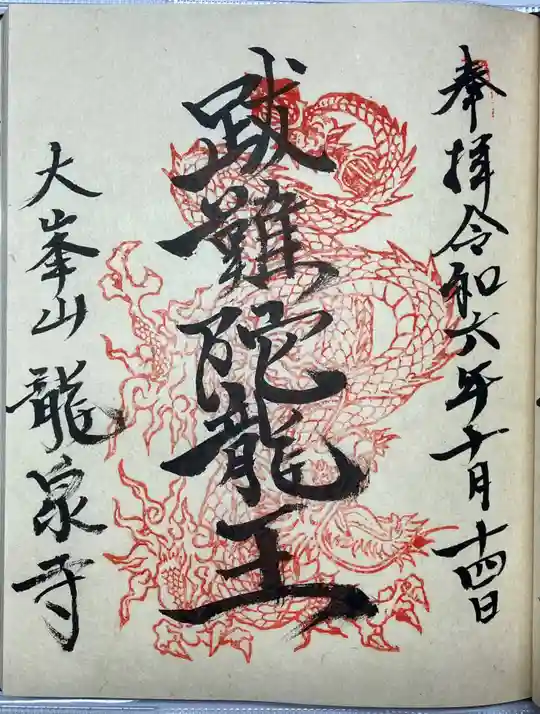 奉拝令和六年十月十四日
跋難陀龍王
大峯山龍泉寺